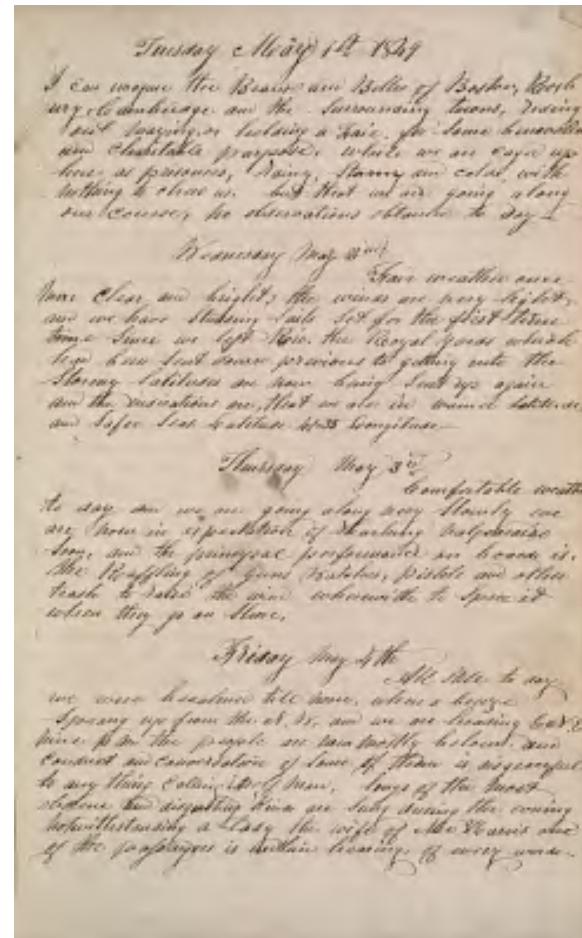 Tuesday May 1st 1849
I can imagine the Beaux and Belles of Boston, Roxb
ury & Cambridge and the surrounding towns, riding
out maying, or holding a Fair, for some benevolent
and charitable purpose, where we are caged up
here as prisoners, rainy, stormy and cold, with
nothing to cheer us. but that we are going along
our course, no observations obtained to day
Wednesday May 2nd
Fair weather once
more clear and bright, the winds are very light,
and we have studding sails set for the first time
time since we left Rio. the Royal yards which
have been sent down previous to getting into the
stormy latitudes are now being sent up again
and the indications are, that we are in warmer latitudes
and safer seas Latitude Longitude
Thursday May 3rd
Comfortable weath
to day and we are going along very slowly we
are now in expectation of reaching Valparaiso
soon, and the principal performance on board is.
the Raffling of Guns Watches, pistols and other
trash to raise the wind wherewith to spree it
when they go on shore.
Friday May 4th
All idle to day
we were becalmed till noon, when a breeze
sprang up from the and we are heading
the people are now mostly and
conduct and conversation of some of them is disgraceful
to any thing calling itself man. Songs of the most
obscene and disgusting kind are sung during the evening
notwithstanding a Lady the wife of Mr one
of the passengers is within hearing of every word.